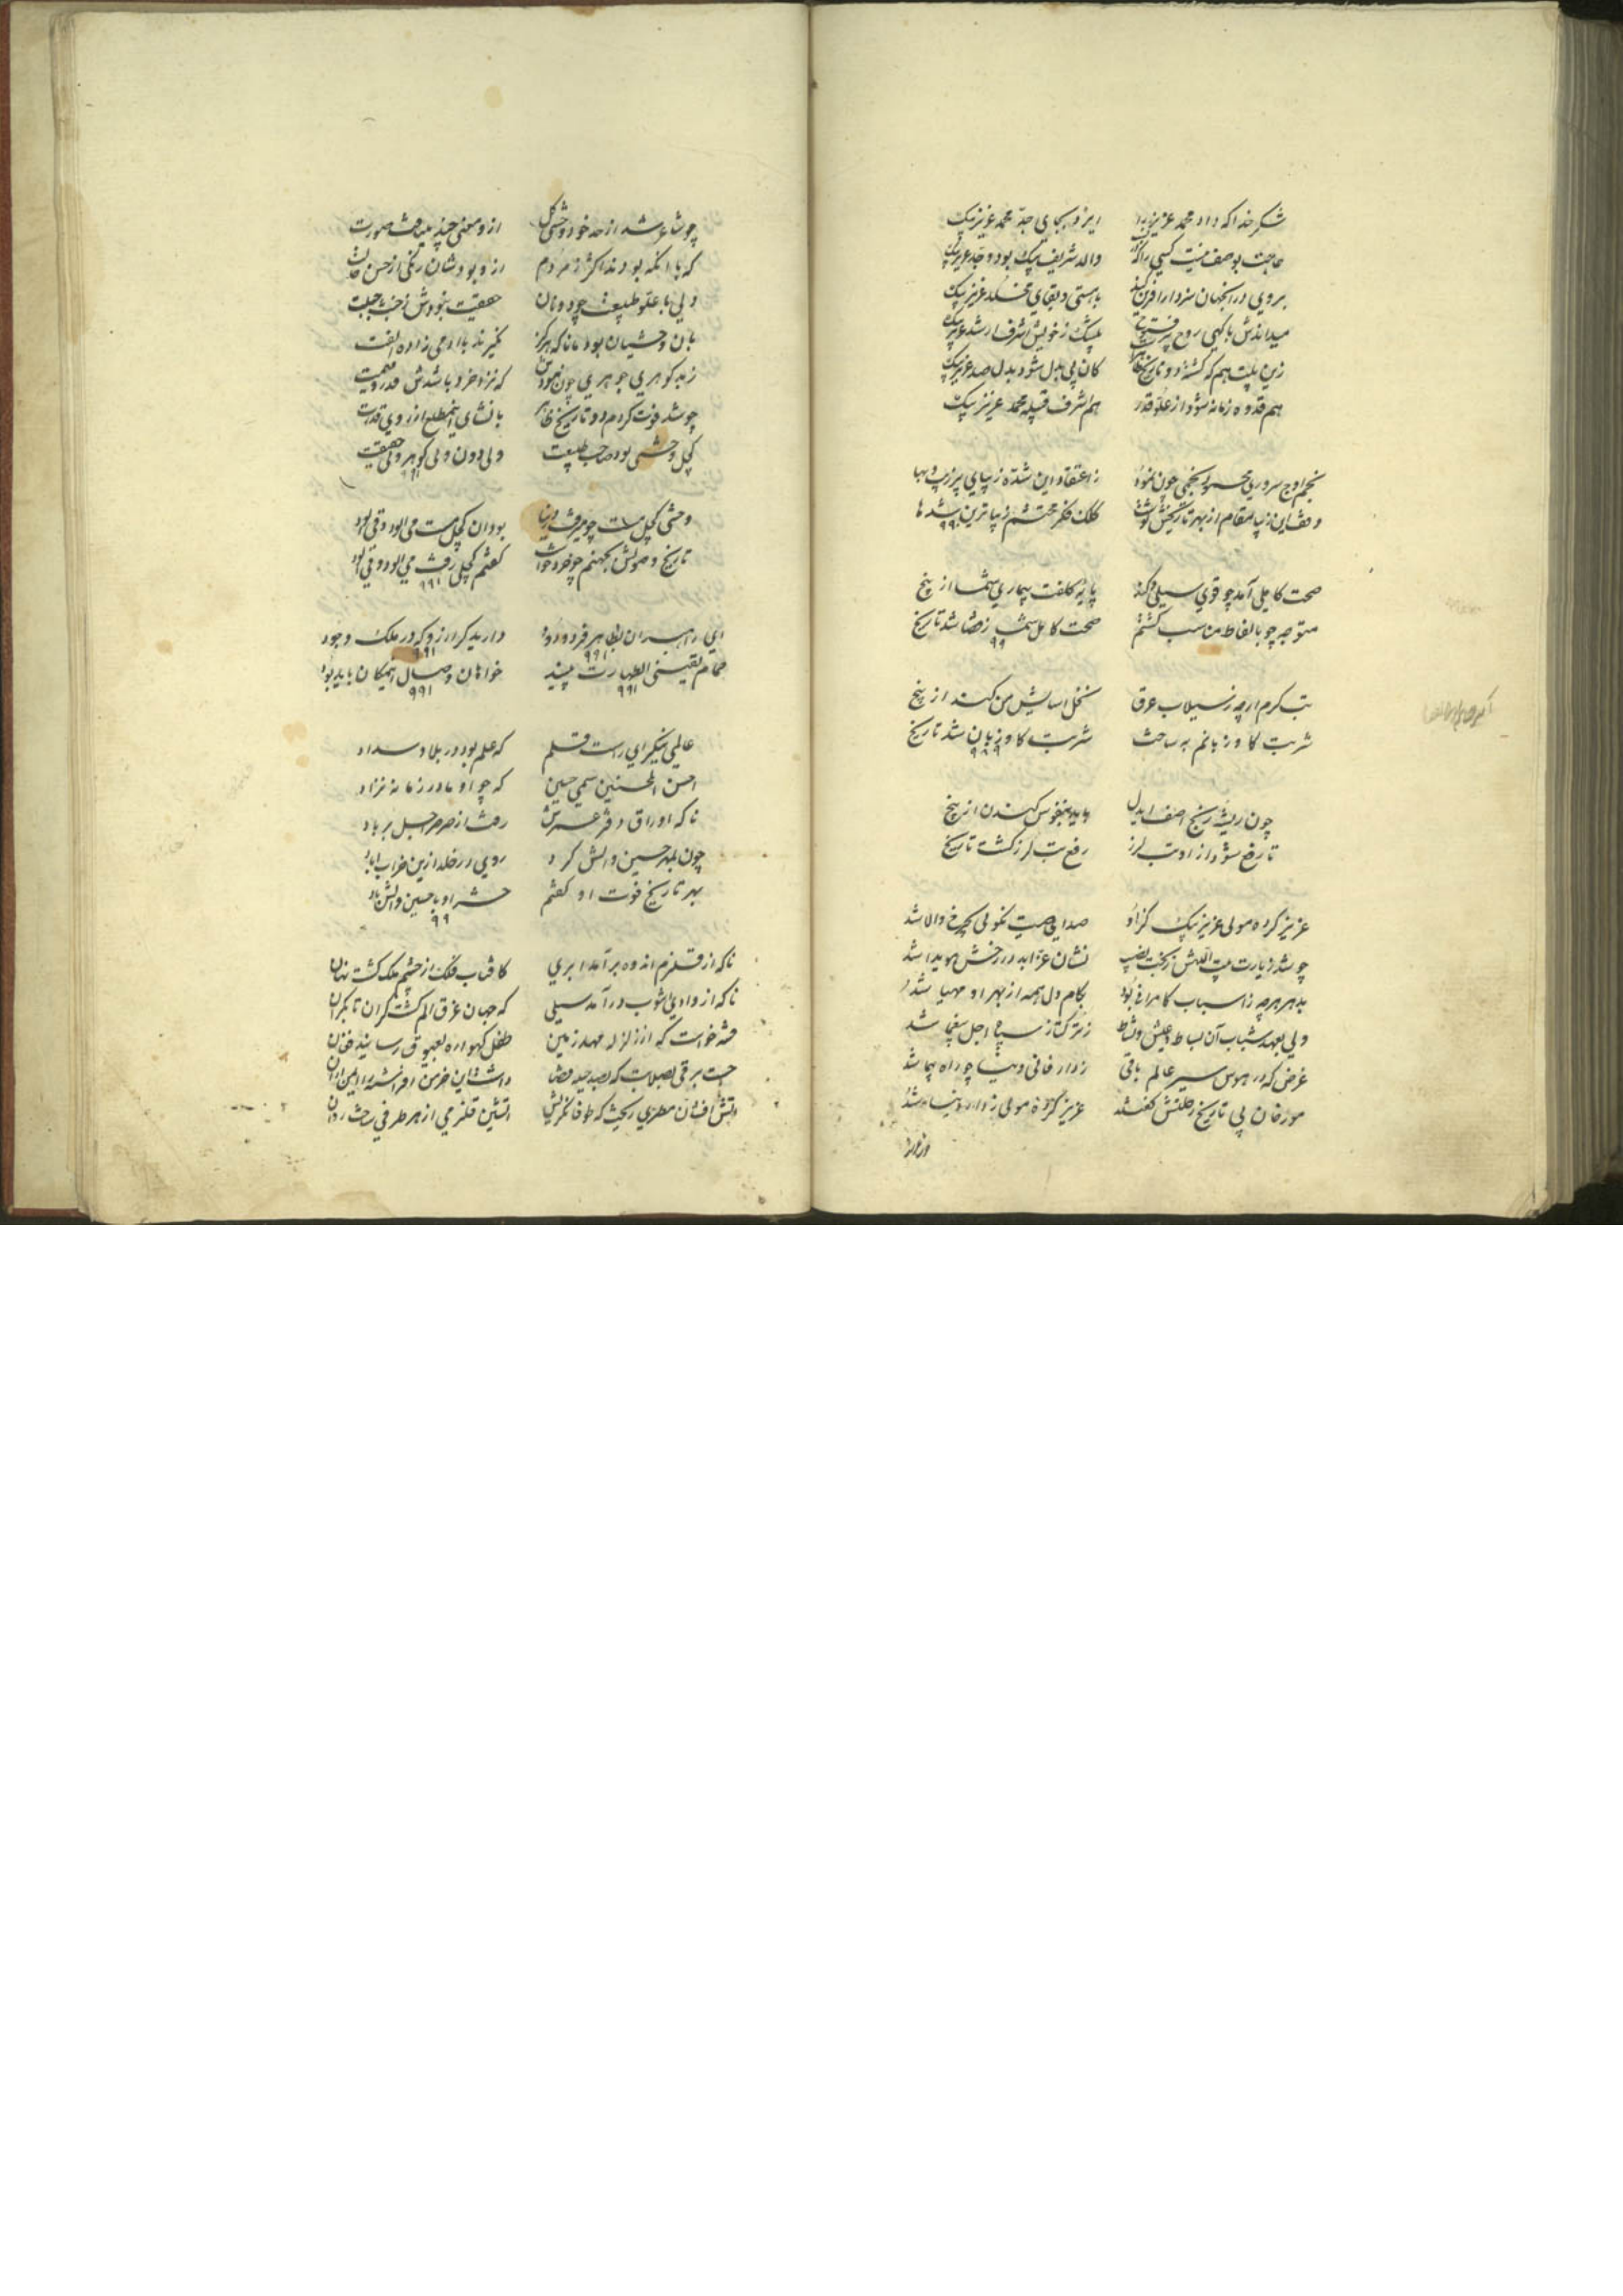 شکر خدا که داد محمد عزیز را ایزد بجای جد محمد عزیز بیک
حاجت بوصف نیست کسی را که والد شریف بیک بود و جد عزیز بیک
بروی در اینجهان سزد ار آفرین کند باهستی و بقای مخلد عزیز بیک
میداندش باکهی روح پر فتوح بیشک ز خویش اشرف و ارشد عزیز بیک
زین بیت هم که گشته دو تاریخ کان بی بدل شود بدل صد عزیز بیک
هم قدوه زمانه شود از علو قدر هم اشرف قبیله محمد عزیز بیک
نجم اوج سروری محسوب نجمی چون نمود ز اعتقاد این شده زیبای پر زیب و بها
وقف این زیبا مقام از بهر تاریخش نوشت کلک فکر محتشم زیباترین شده‌ها
۹۹۰
صحت کاملی آمد چو قوی سیلی و کند پایه کلفت بیماری شما از بیخ
متوجه چو بالفاظ مناسب گشتم صحت کامل شمسا ز قضا شد تاریخ
۹۹
تب گرم ارچه ز سیلاب عرق نخل آسایش من کند از بیخ
شربت کاو زبانم به ساخت شربت کاو زبان شد تاریخ
۹۸۹
چون ریشه رنج آصف ایدل باید بنفوس کندن از بیخ
تا رفع شود از او تب لرز رفع تب لرز گشت تاریخ
عزیز کرده مولی عزیز بیک کز او صدای صیت نکوئی بچرخ والا شد
چو شد زیارت بیت اللهش ز بخت نصیب نشان عز ابد در رخش هویدا شد
بدهر هرچه ز اسباب کامرانی بود بکام دل همه از بهر او مهیا شد
ولی بعهد شباب آن بساط و عیش و نشاط ز ترکتاز سپاه اجل بیغما شد
غرض که در هوس سیر عالم باقی ز دار فانی دنیا چو راه پیما شد
مورخان پی تاریخ رحلتش گفتند عزیز کرده مولی ز دار دنیا شد
چو شاعر شد از حد خود وحشی کل از و معنی چند یافت صورت
که با آنکه بودند اکثر ز مردم از و بودشان رنگی از حسن حالت
ولی با علو طبیعت چو دونان حقیقت نبودش ز خبث جبلت
بآن وحشیان بود مانا که هرگز نگیرند با آدمی زاده الفت
ز بدگوهری جوهری چون نبودش که نزد خرد باشدش قدر و قیمت
چو شد فوت کردم دو تاریخ ظاهر بانشای این مطلع از روی قدرت
کچل وحشی بود صاحب طبیعت ولی دون ولی گوهر و بی حقیقت
۹۹۱
وحشی کچل مست چو میرفت ز دنیا بود آن کچل مست می آلود و قی آلود
تاریخ وصولش بجهنم چو خرد خواست گفتم کچل رفت می آلود و قی آلود
۹۹۱
ای راهبران بظاهر فرد ودود دارید گر آرزو که در ملک وجود
۹۹۱ ۹۹۱
حمام یقینی الطهارت بینید خواهان وصال نیکان باید بود
۹۹۱ ۹۹۱
عالمی بیکرای راست قلم که علم بود در بلاد سداد
احسن المحسنین سمی حسین که چو او مادر زمانه نزاد
ناگه اوراق دفتر عمرش رفت از صرصر اجل بر باد
چون بمهر حسین و آلش کرد روی در خلد ازین خراب آباد
بهر تاریخ فوت او گفتم حشر او با حسین و آلش باد
۹۹
ناگه از قلزم اندوه برآمد ابری کافتاب فلک از چشم ملک گشت نهان
ناگه از وادی آشوب درآمد سیلی که جهان غرق الم گشت کران تا بکران
فتنه خواست که از زلزله مهد زمین طفل گهواره بعیوق رسانید فغان
جست برقی بصلابت که بصد حیله قضا داشت این خرمن افراشته را ایمن از آن
آتش افشان مطری ریخت که طوفان اثرش آتشین قلزمی از هر طرفی ساخت روان